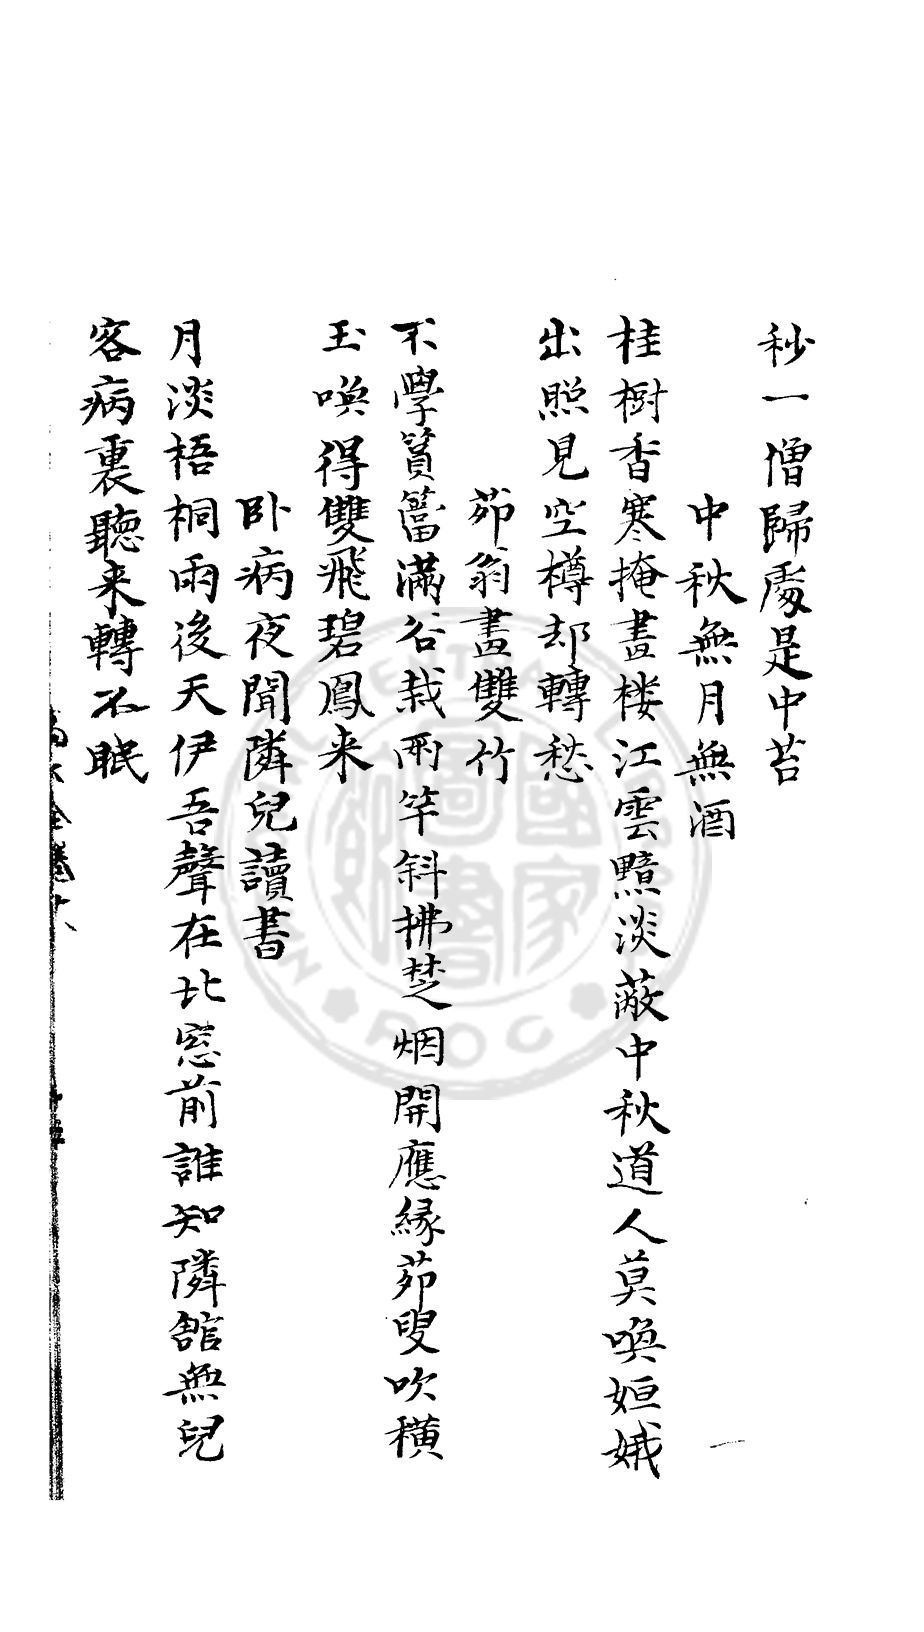 秒一僧歸處是中苕
中秋無月無酒
桂樹香寒掩畫楼江雲黯淡蔽中秋道人莫喚姮娥
出照見空樽却轉愁
茆翁畫雙竹
不學篔簹滿谷栽兩竿斜拂楚烟開應縁茆叟吹橫
玉喚得雙飛碧鳳来
卧病夜聞隣兒讀書
月淡梧桐雨後天伊吾聲在北窓前誰知隣館無兒
客病裏聽来轉不眠